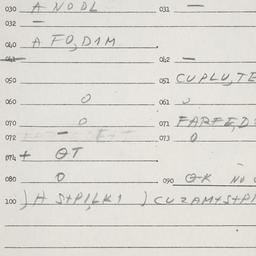 030 A NODL 031 —
032 —
040 A FO,D1M
041 042 —
050 051 CUPLU,TE
060 0 061 0
070 0 071 FARFE,D
072 — 073 0
074 + OT
080 0 090 O-K NU
100 ) A S+PI,LK1 ) CUZAM+S+PI